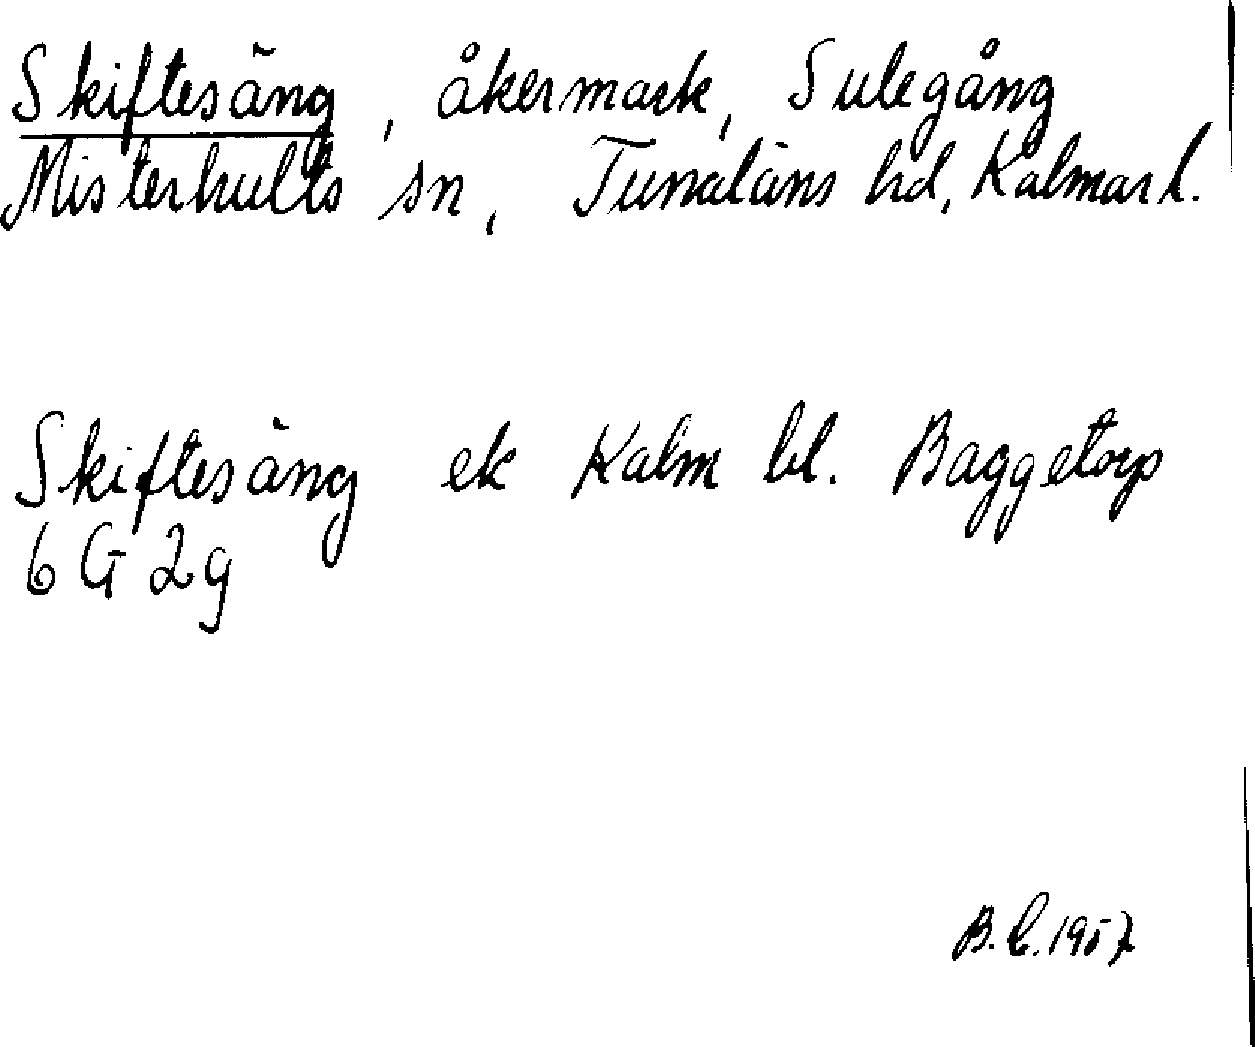 Skiftesäng, åkermark, Sulegång
Misterhults sn, Tunaläns hd, Kalmar l.
Skiftesäng ek Kalm bl. Baggetorp
6 G 2g
B. C. 1957